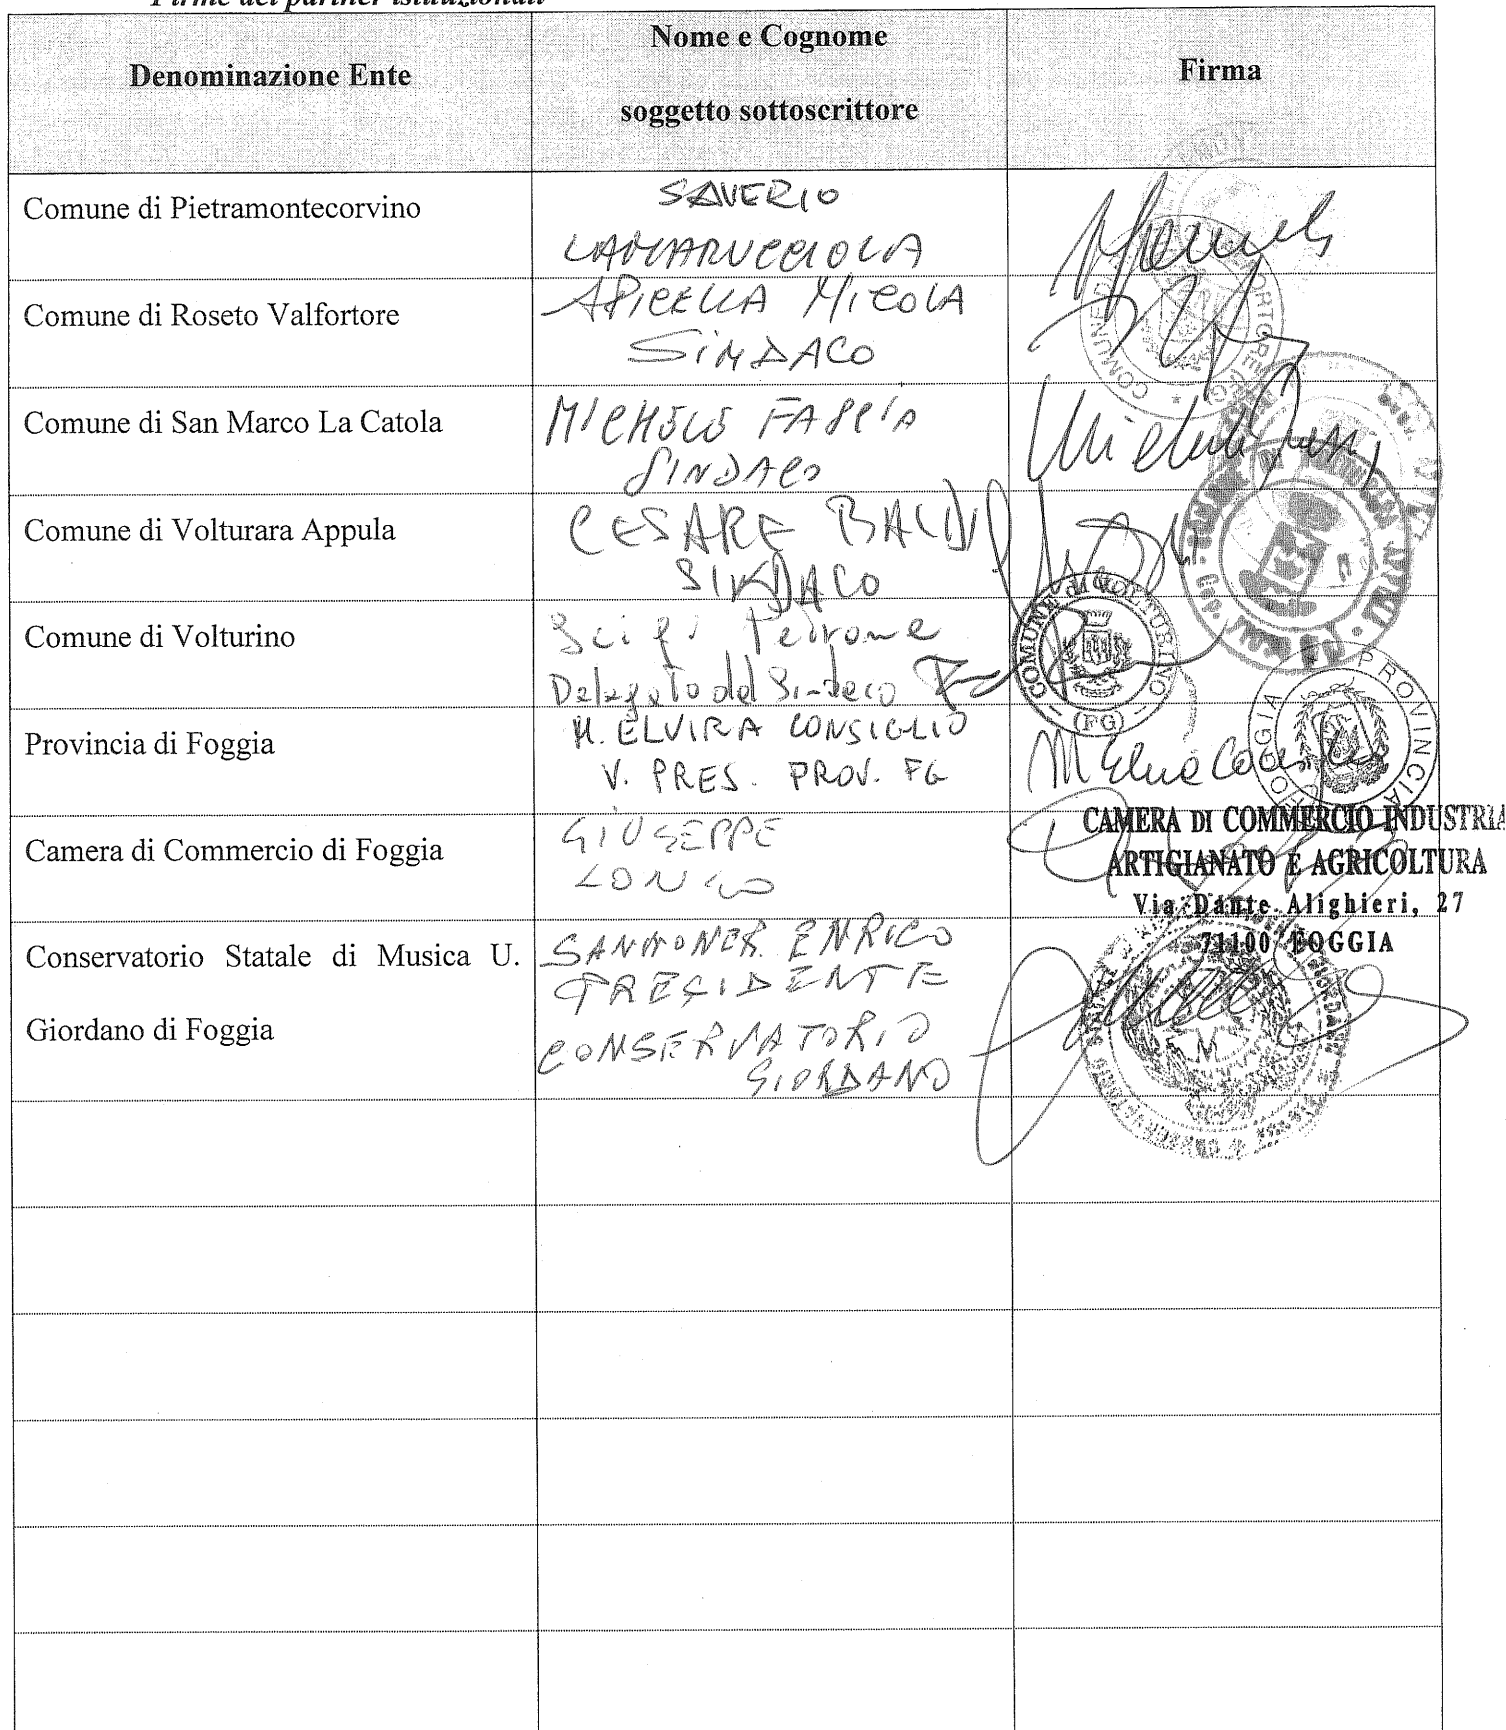 Firme dei partner istituzionali
Denominazione Ente
Nome e Cognome
soggetto sottoscrittore
Firma
Comune di Pietramontecorvino
SAVERIO
LAMARUCCIOLA
Comune di Roseto Valfortore
APICELLA NICOLA
SINDACO
Comune di San Marco La Catola
MICHELE FASCIA
SINDACO
Comune di Volturara Appula
CESARE
SINDACO
Comune di Volturino
Petrone
Delegato del Sindaco
COMUNE DI VOLTURINO
(FG)
Provincia di Foggia
M. ELVIRA CONSIGLIO
V. PRES. PROV. FG
PROVINCIA
FOGGIA
Camera di Commercio di Foggia
GIUSEPPE
LONGO
CAMERA DI COMMERCIO INDUSTRIA
ARTIGIANATO E AGRICOLTURA
Via Dante Alighieri, 27
71100 FOGGIA
Conservatorio Statale di Musica U.
Giordano di Foggia
ENRICO
PRESIDENTE
CONSERVATORIO
GIORDANO